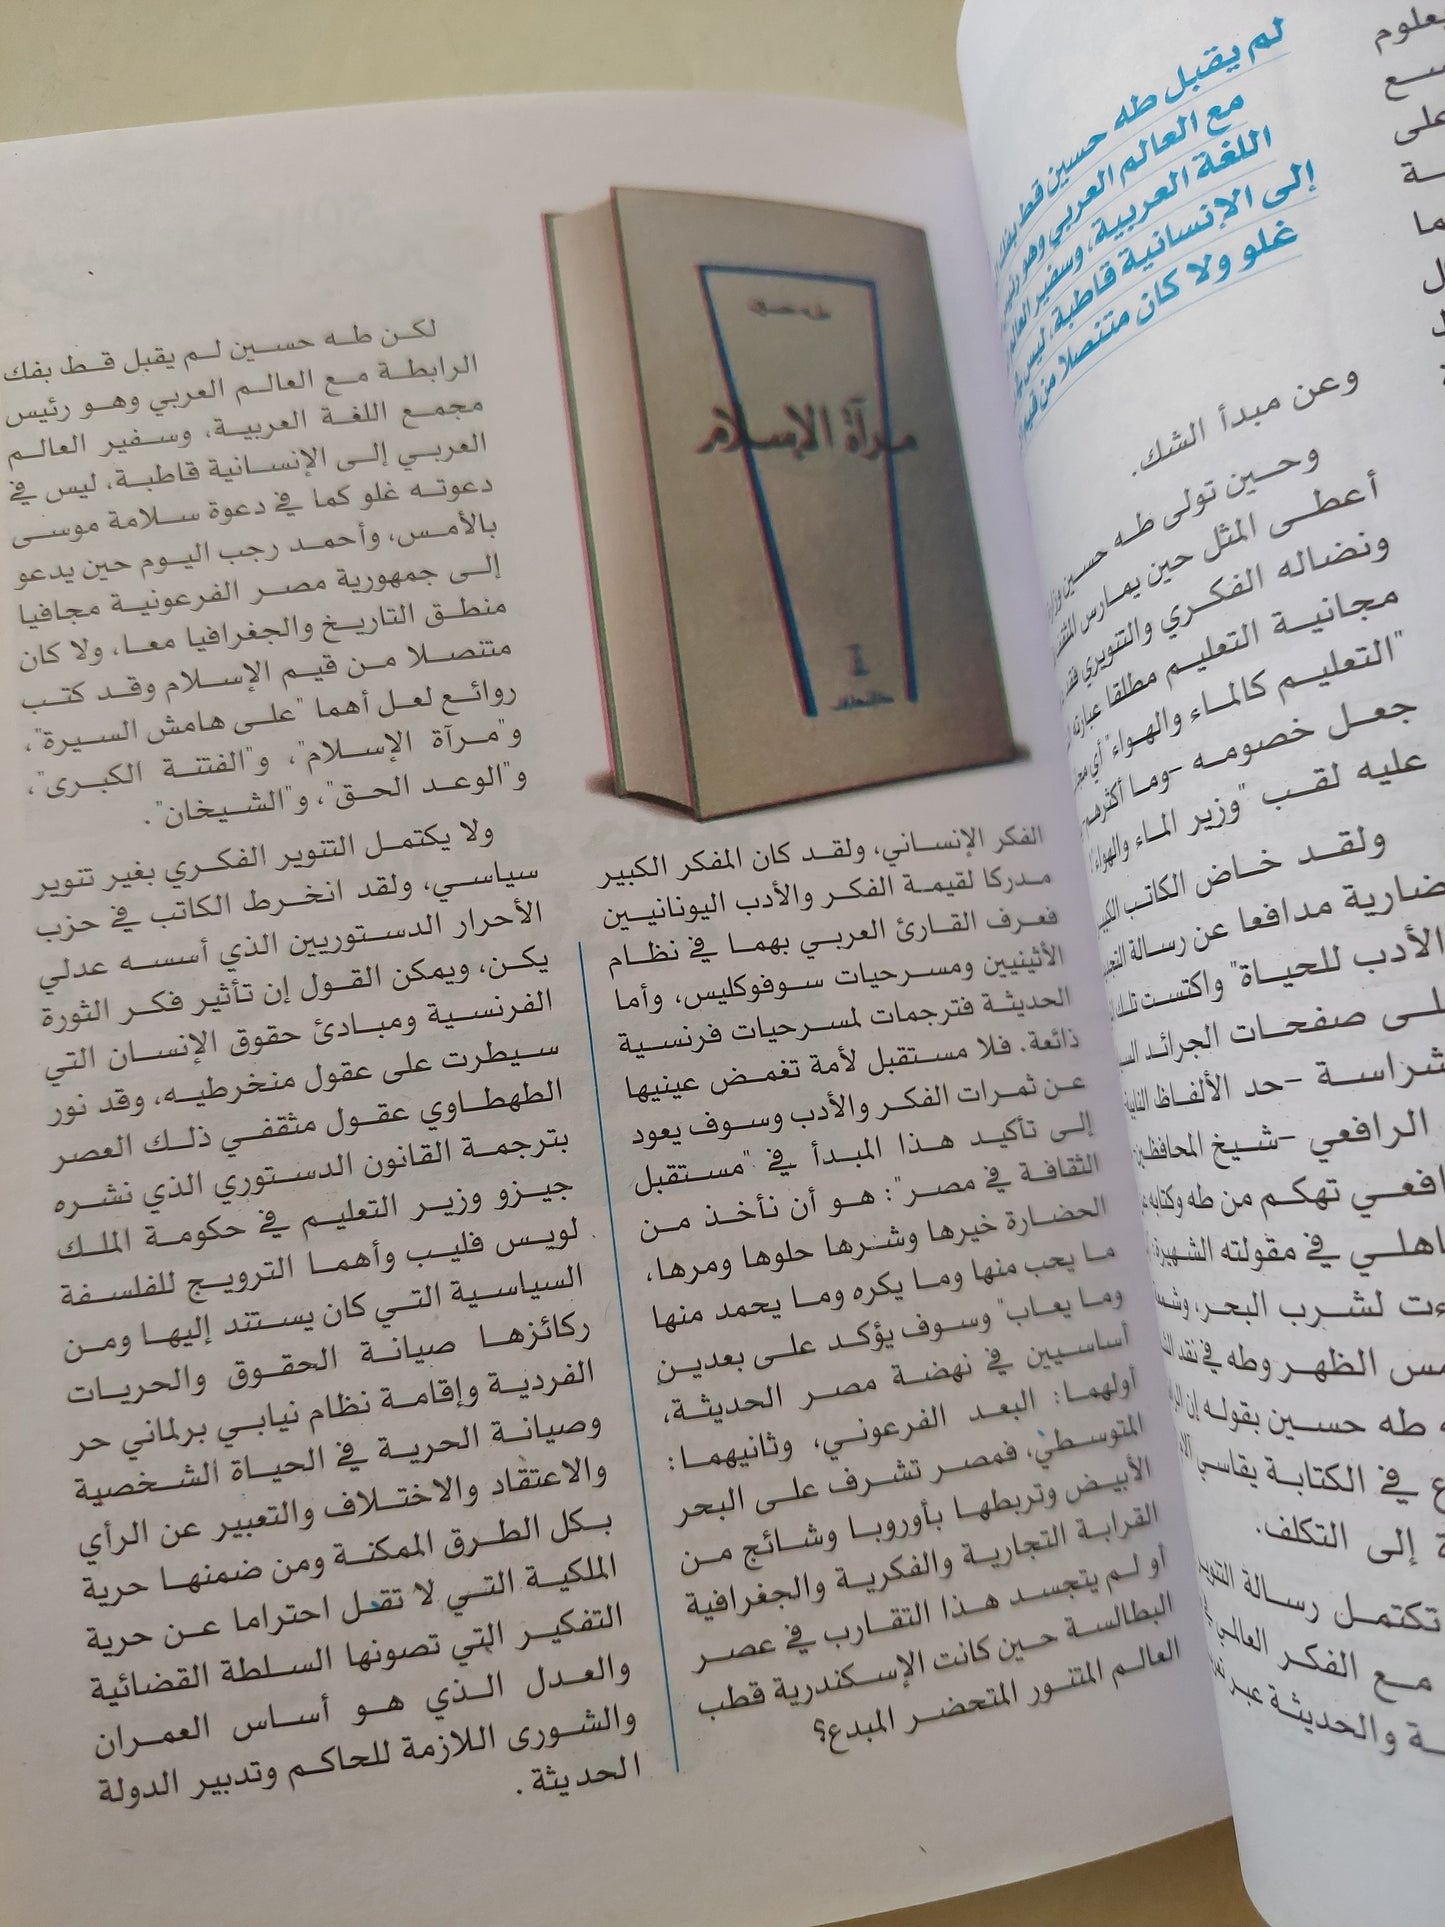 لم يقبل طه حسين قط بفك
مع العالم العربي وهو رئيس
اللغة العربية، وسفير العالم
إلى الإنسانية قاطبة، ليس
غلو ولا كان متنصلا من قيم
وعن مبدأ الشك.
وحين تولى طه حسين وزارة
أعطى المثل حين يمارس المثقف
ونضاله الفكري والتنويري فقد
مجانية التعليم مطلقا عبارته
"التعليم كالماء والهواء" أي
جعل خصومه -وما أكثرهم
عليه لقب "وزير الماء والهواء"!
ولقد خاض الكاتب الكبير
مدافعا عن رسالة
الأدب للحياة" واكتست تلك
صفحات الجرائد
شراسة -حد الألفاظ النابية
الرافعي -شيخ المحافظين-
تهكم من طه وكتابه
في مقولته الشهيرة:
لشرب البحر،
الظهر وطه في نقد
طه حسين بقوله إن
في الكتابة يقاسي
إلى التكلف.
تكتمل رسالة
مع الفكر العالمي
والحديثة عبر
مرآة الإسلام
الفكر الإنساني، ولقد كان المفكر الكبير
مدركا لقيمة الفكر والأدب اليونانيين
فعرف القارئ العربي بهما في نظام
الأثينيين ومسرحيات سوفوكليس، وأما
الحديثة فترجمات لمسرحيات فرنسية
ذائعة. فلا مستقبل لأمة تغمض عينيها
عن ثمرات الفكر والأدب وسوف يعود
إلى تأكيد هذا المبدأ في "مستقبل
الثقافة في مصر": هو أن نأخذ من
الحضارة خيرها وشرها حلوها ومرها،
ما يحب منها وما يكره وما يحمد منها
وما يعاب" وسوف يؤكد على بعدين
أساسيين في نهضة مصر الحديثة،
أولهما: البعد الفرعوني، وثانيهما:
المتوسطي، فمصر تشرف على البحر
الأبيض وتربطها بأوروبا وشائج من
القرابة التجارية والفكرية والجغرافية
أو لم يتجسد هذا التقارب في عصر
البطالسة حين كانت الإسكندرية قطب
العالم المتنور المتحضر المبدع؟
لكن طه حسين لم يقبل قط بفك
الرابطة مع العالم العربي وهو رئيس
مجمع اللغة العربية، وسفير العالم
العربي إلى الإنسانية قاطبة، ليس في
دعوته غلو كما في دعوة سلامة موسى
بالأمس، وأحمد رجب اليوم حين يدعو
إلى جمهورية مصر الفرعونية مجافيا
منطق التاريخ والجغرافيا معا، ولا كان
متنصلا من قيم الإسلام وقد كتب
روائع لعل أهما "على هامش السيرة"،
و"مرآة الإسلام"، و"الفتنة الكبرى"،
و"الوعد الحق"، و"الشيخان".
ولا يكتمل التنوير الفكري بغير تنوير
سياسي، ولقد انخرط الكاتب في حزب
الأحرار الدستوريين الذي أسسه عدلي
يكن، ويمكن القول إن تأثير فكر الثورة
الفرنسية ومبادئ حقوق الإنسان التي
سيطرت على عقول منخرطيه، وقد نور
الطهطاوي عقول مثقفي ذلك العصر
بترجمة القانون الدستوري الذي نشره
جيزو وزير التعليم في حكومة الملك
لويس فليب وأهما الترويج للفلسفة
السياسية التي كان يستند إليها ومن
ركائزها صيانة الحقوق والحريات
الفردية وإقامة نظام نيابي برلماني حر
وصيانة الحرية في الحياة الشخصية
والاعتقاد والاختلاف والتعبير عن الرأي
بكل الطرق الممكنة ومن ضمنها حرية
الملكية التي لا تقل احتراما عن حرية
التفكير التي تصونها السلطة القضائية
والعدل الذي هو أساس العمران
والشورى اللازمة للحاكم وتدبير الدولة
الحديثة.